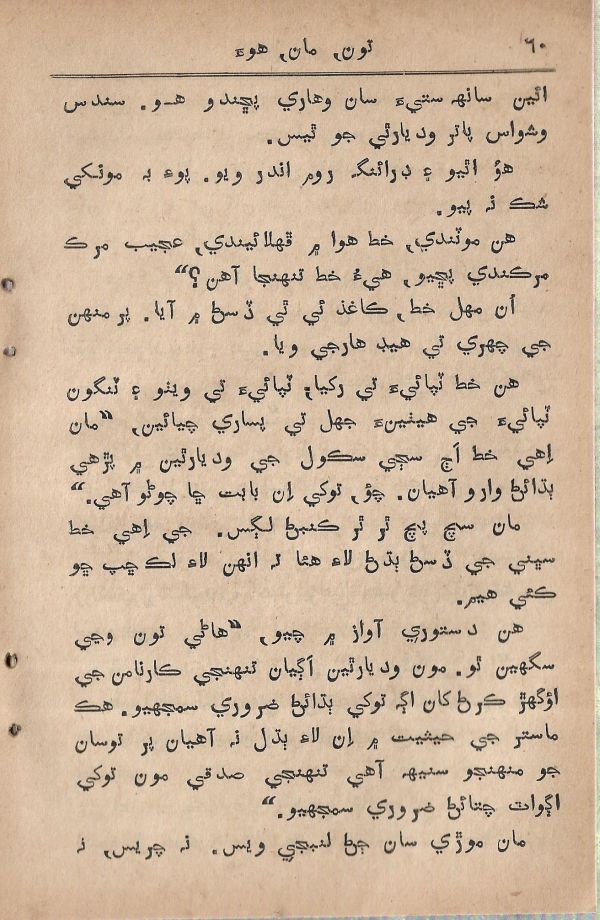 ۶۰
تون, مان, هوءَ
ائين سانهه سٿيءَ سان وهاري پڇندو هـو. سندس
وشواس پاتر وديارٿي جو ٿيس.
هؤ اٿيو ۽ ڊرائنگ روم اندر ويو. پوءِ بہ مونکي
شڪ نہ پيو.
هن موٽندي, خط هوا ۾ ڦهلائيندي, عجيب مرڪ
مرڪندي پڇيو, هيءُ خط تنهنجا آهن؟“
اُن مهل خط, ڪاغذ ئي ٿي ڏسڻ ۾ آيا. پر منهن
جي چهري تي هيڊ هارجي ويا.
هن خط ٽپائيءَ تي رکيا, ٽپائيءَ تي ويٺو ۽ ٽنگون
ٽپائيءَ جي هيٺينءَ جهل تي پساري چيائين, “مان
اِهي خط اَڄ سڄي سڪول جي وديارٿين ۾ پڙهي
ٻڌائڻ وارو آهيان. چؤ, توکي اِن بابت ڇا چوڻو آهي.“
مان سچ پچ ٿر ٿر ڪنبڻ لڳس. جي اِهي خط
سڀني جي ڏسڻ ٻڌڻ لاءِ هئا تہ انهن لاءِ لڪ ڇپ ڇو
ڪئي هيم.
هن دستوري آواز ۾ چيو, “هاڻي تون وڃي
سگهين ٿو. مون وديارٿين اَڳيان تنهنجي ڪارنامن جي
اؤگهڙ ڪرڻ کان اڳ توکي ٻڌائڻ ضروري سمجهيو. هڪ
ماستر جي حيثيت ۾ اِن لاءِ ٻڌل نہ آهيان پر توسان
جو منهنجو سنيهہ آهي تنهنجي صدقي مون توکي
اڳواٽ چتائڻ ضروري سمجهيو.“
مان موڙي سان ڄڻ لنبجي ويس. نہ چريس, نہ